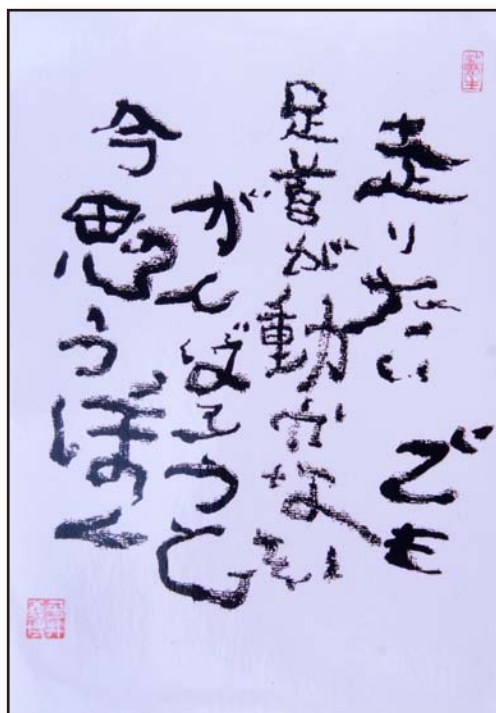 走りたい でも
足首が動かない
がんばろうと
今思うぼく